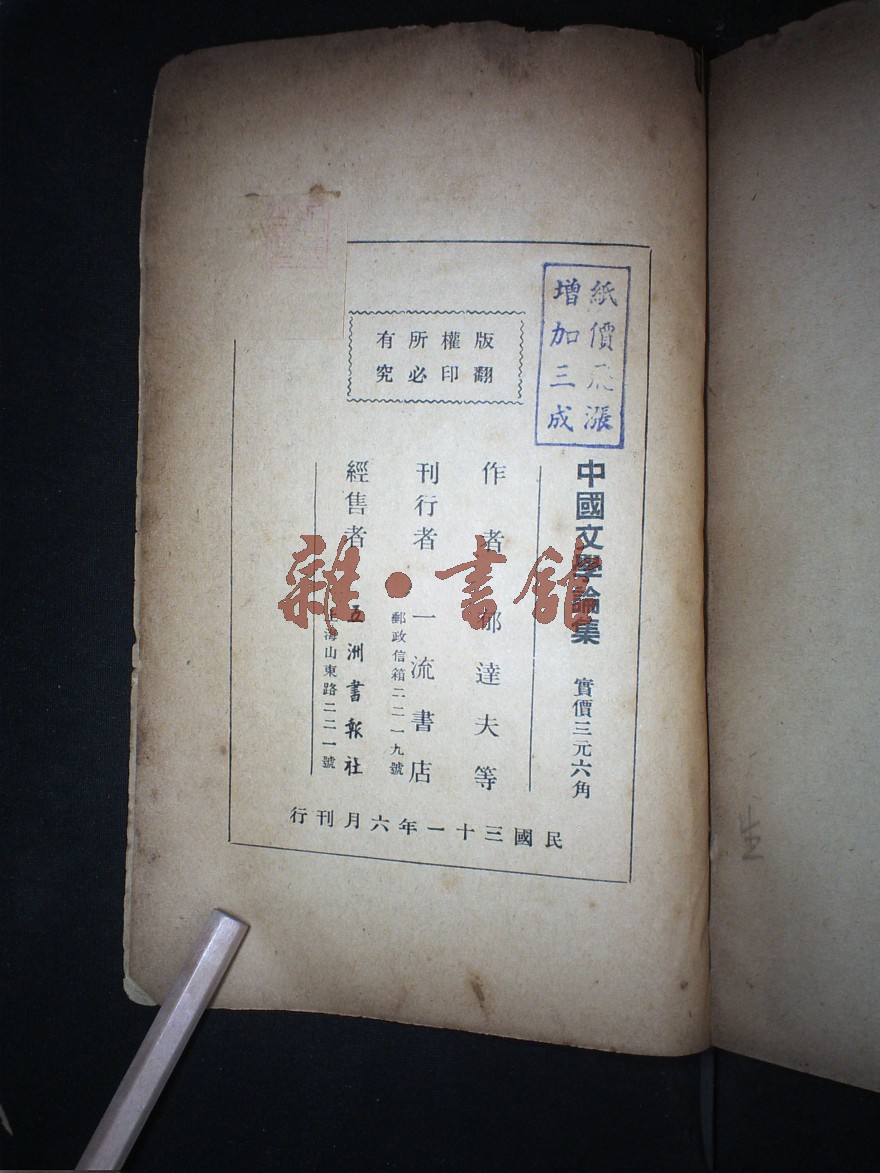 紙價飛漲
增加三成
版權所有
翻印必究
中國文學論集 實價三元六角
作者 郁達夫等
刊行者 一流書店
郵政信箱二二一九號
經售者 五洲書報社
上海山東路二二一號
民國三十一年六月刊行
雜·書館
生